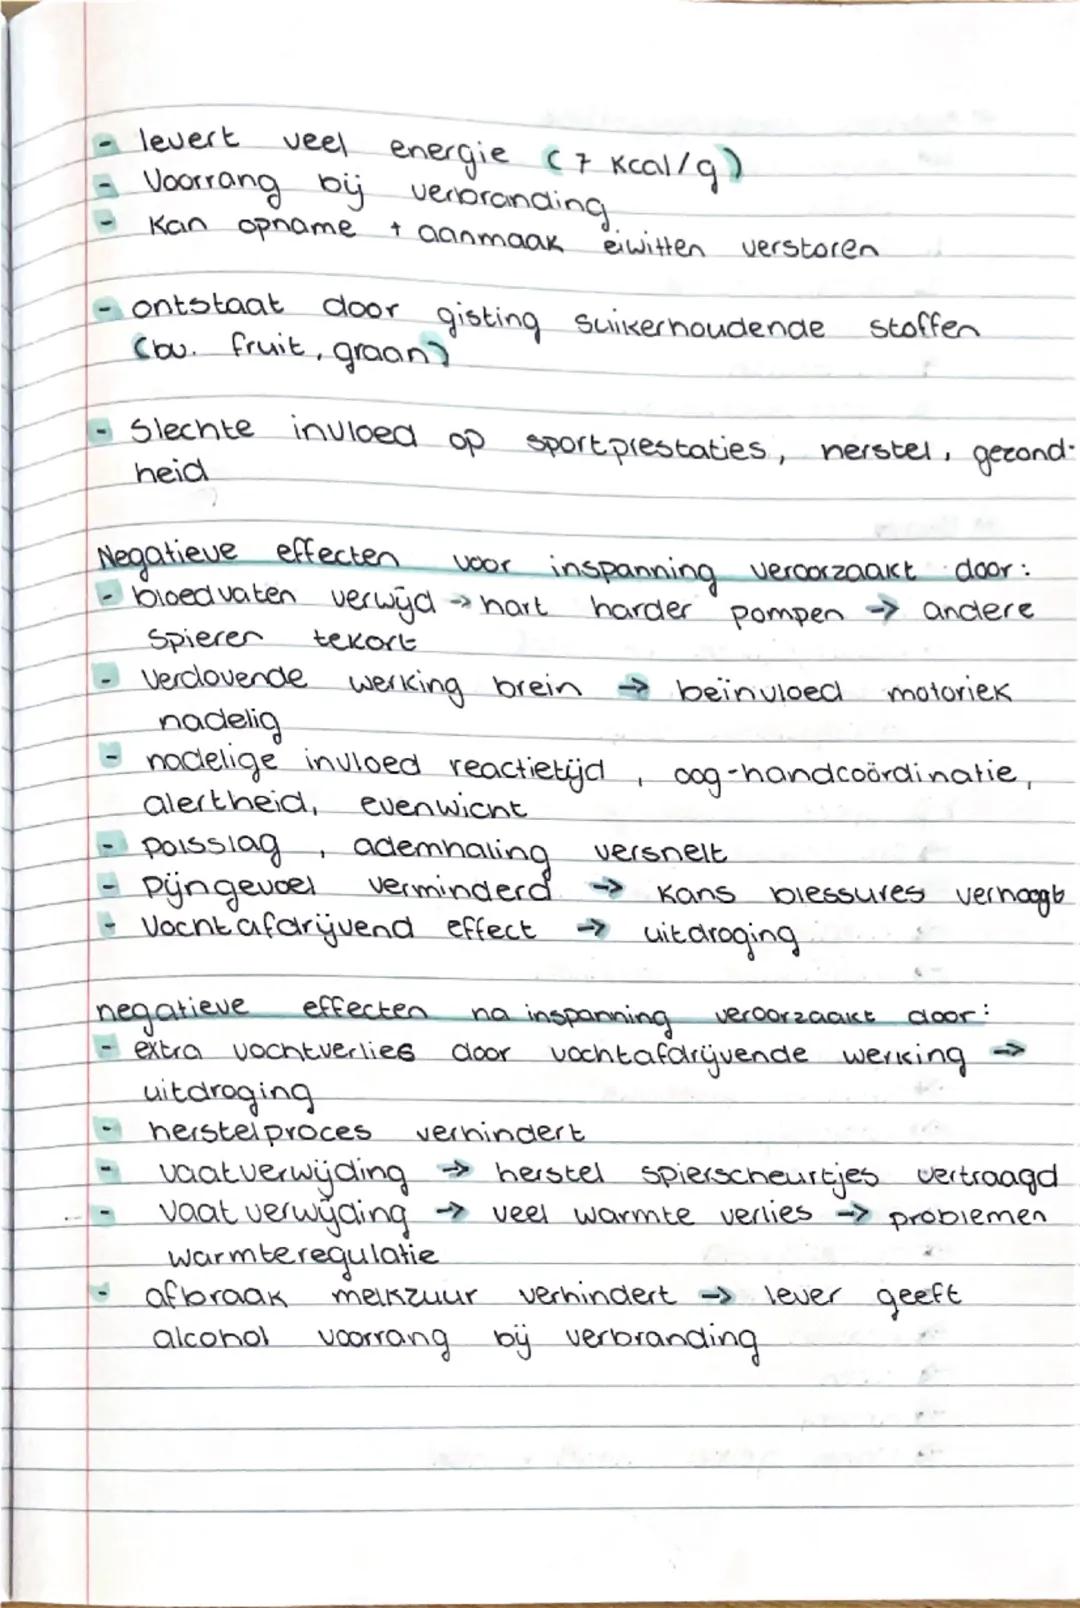 - levert veel energie (7 Kcal/g)
- Voorrang bij verbranding
- Kan opname + aanmaak eiwitten verstoren
- ontstaat door gisting suikerhoudende stoffen
(bv. fruit, graan)
- Slechte invloed op sportprestaties, herstel, gezond-
heid
Negatieve effecten voor inspanning veroorzaakt door:
- bloedvaten verwijd → hart harder pompen → andere
spieren tekort
- Verdovende werking brein → beïnvloed motoriek
nadelig
- nadelige invloed reactietijd, oog-handcoördinatie,
alertheid, evenwicht
- Polsslag, ademhaling versnelt
- Pijngevoel verminderd → Kans blessures verhoogt
- Vochtafdrijvend effect → uitdroging
negatieve effecten na inspanning veroorzaakt door:
- extra vochtverlies door vochtafdrijvende werking →
uitdroging
- herstelproces verhindert
- vaatverwijding → herstel spierscheurtjes vertraagd
- vaatverwijding → veel warmte verlies → problemen
warmteregulatie
- afbraak melkzuur verhindert → lever geeft
alcohol voorrang bij verbranding